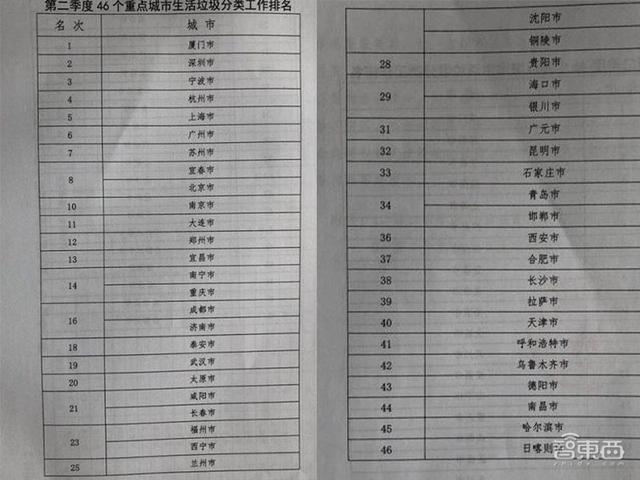 第二季度 46 个重点城市生活垃圾分类工作排名
名 次 城 市
1 厦门市
2 深圳市
3 宁波市
4 杭州市
5 上海市
6 广州市
7 苏州市
8 宜春市
北京市
10 南京市
11 大连市
12 郑州市
13 宜昌市
14 南宁市
重庆市
16 成都市
济南市
18 泰安市
19 武汉市
20 太原市
21 咸阳市
长春市
23 福州市
西宁市
25 兰州市
沈阳市
铜陵市
28 贵阳市
29 海口市
银川市
31 广元市
32 昆明市
33 石家庄市
34 青岛市
邯郸市
36 西安市
37 合肥市
38 长沙市
39 拉萨市
40 天津市
41 呼和浩特市
42 乌鲁木齐市
43 德阳市
44 南昌市
45 哈尔滨市
46 日喀则
智東西
zhidx.com